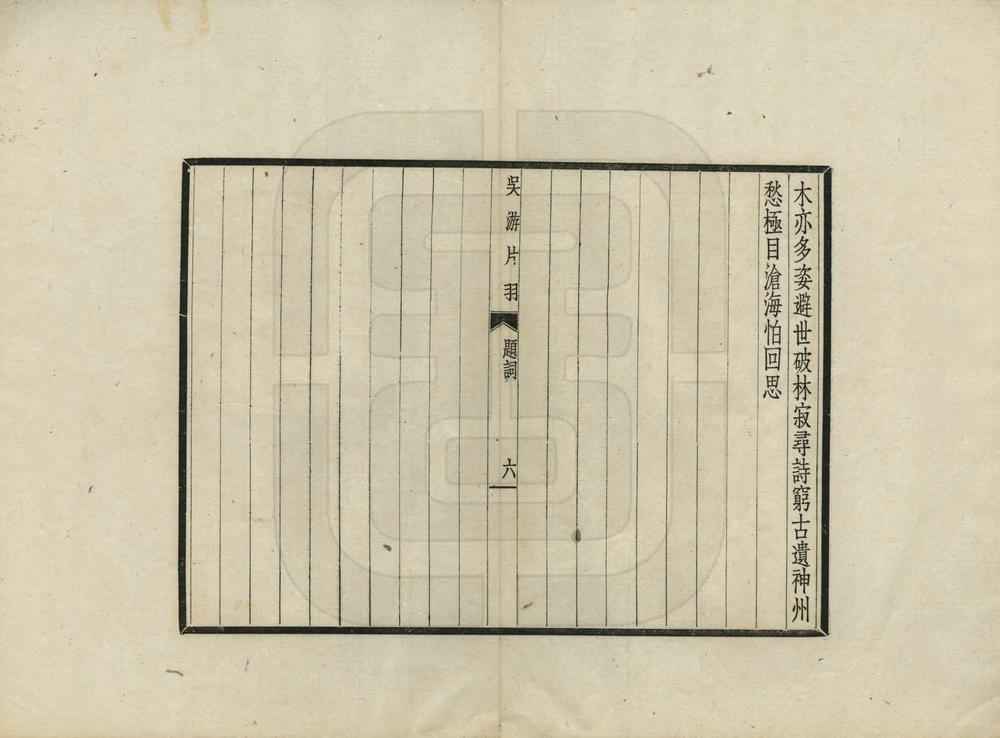 木亦多姿避世破林寂尋詩窮古遺神州
愁極目滄海怕回思
吳游片羽
題詞
六